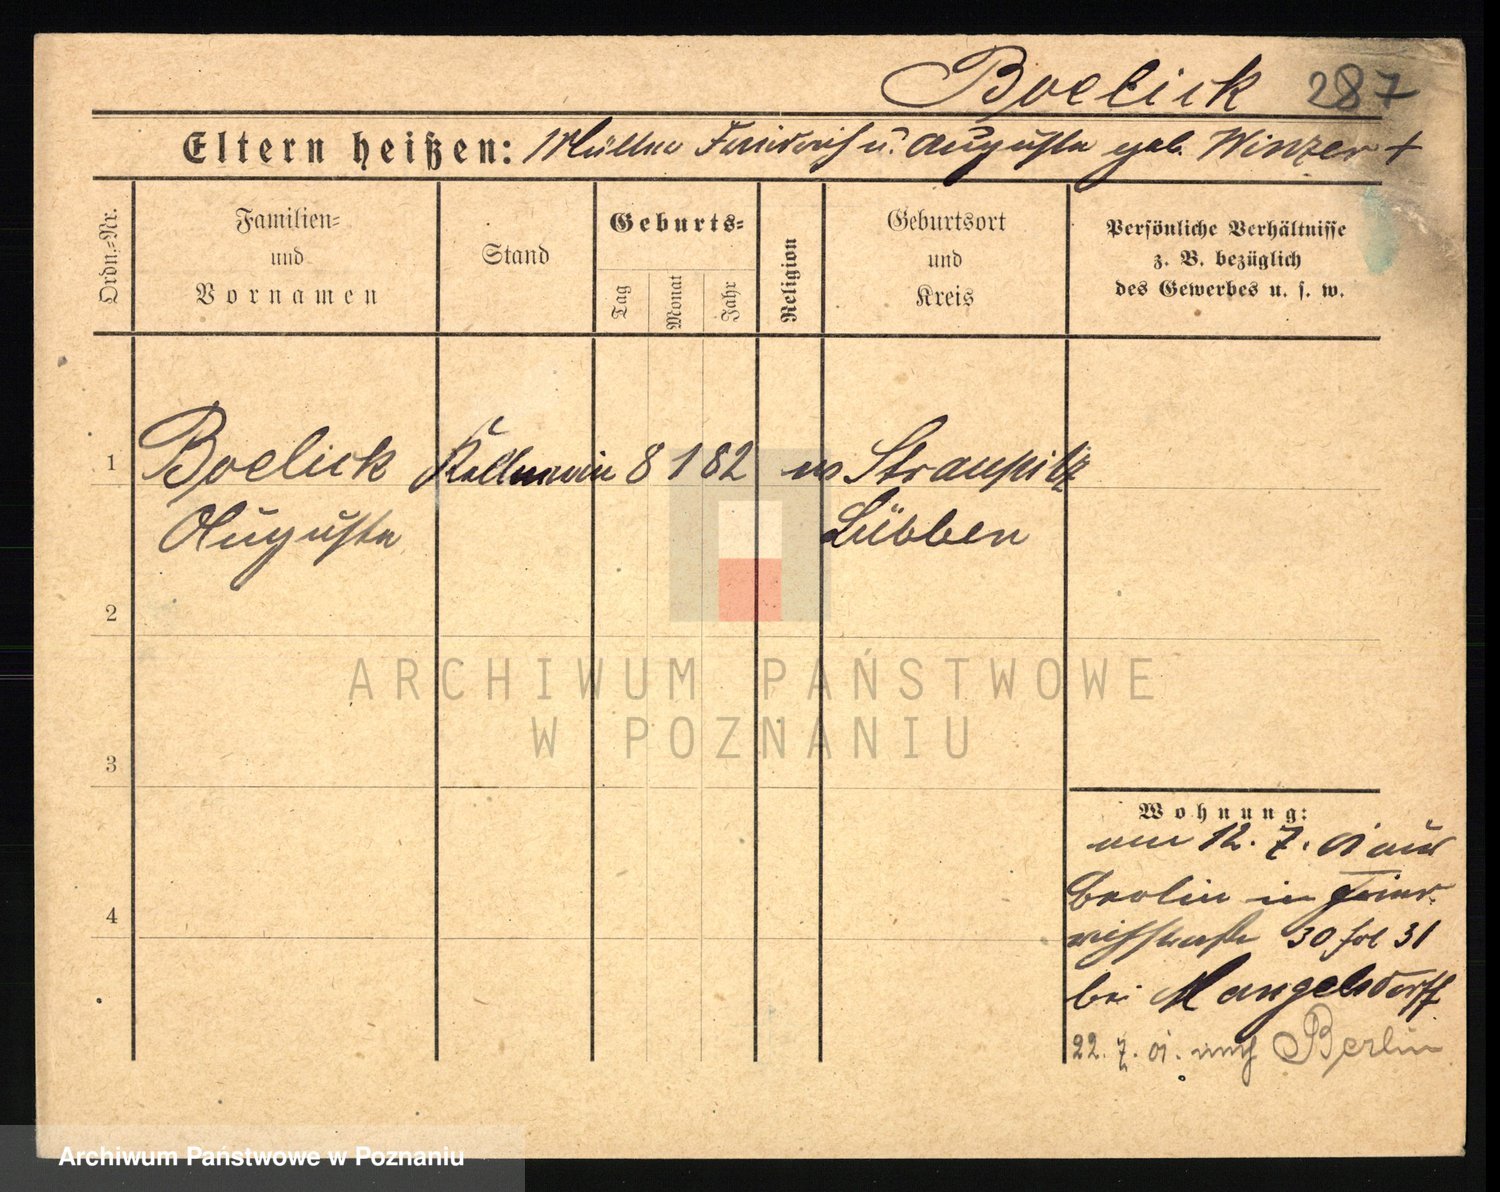 Boelick 287
Eltern heißen: Müller Friedrich u. Auguste geb. Winzer +
Ordn.-Nr.
Familien-
und
Vornamen
Stand
Geburts-
Tag
Monat
Jahr
Religion
Geburtsort
und
Kreis
Persönliche Verhältnisse
z. B. bezüglich
des Gewerbes u. s. w.
1 Boelick Kellnerin 8 1 82 ev Straupitz
Auguste Lübben
2
ARCHIWUM PAŃSTWOWE
W POZNANIU
3
Wohnung:
am 12. 7. 01 aus
Berlin in Fried-
richstraße 30 fol 31
bei Mangelsdorff
22. 7. 01. nach Berlin
4
Archiwum Państwowe w Poznaniu